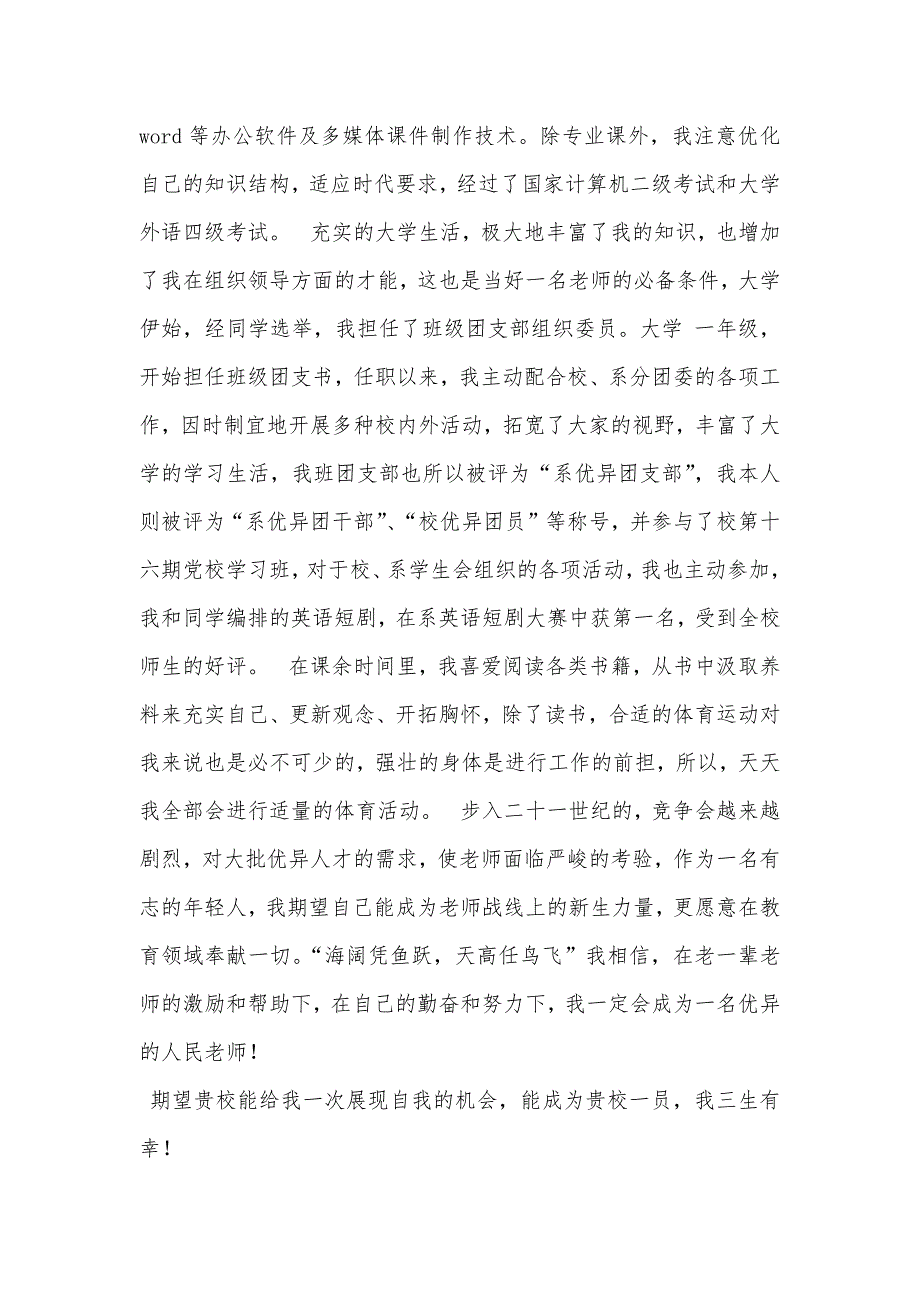 word等办公软件及多媒体课件制作技术。除专业课外，我注意优化
自己的知识结构，适应时代要求，经过了国家计算机二级考试和大学
外语四级考试。　充实的大学生活，极大地丰富了我的知识，也增加
了我在组织领导方面的才能，这也是当好一名老师的必备条件，大学
伊始，经同学选举，我担任了班级团支部组织委员。大学 一年级，
开始担任班级团支书，任职以来，我主动配合校、系分团委的各项工
作，因时制宜地开展多种校内外活动，拓宽了大家的视野，丰富了大
学的学习生活，我班团支部也所以被评为“系优异团支部”，我本人
则被评为“系优异团干部”、“校优异团员”等称号，并参与了校第十
六期党校学习班，对于校、系学生会组织的各项活动，我也主动参加，
我和同学编排的英语短剧，在系英语短剧大赛中获第一名，受到全校
师生的好评。　在课余时间里，我喜爱阅读各类书籍，从书中汲取养
料来充实自己、更新观念、开拓胸怀，除了读书，合适的体育运动对
我来说也是必不可少的，强壮的身体是进行工作的前担，所以，天天
我全部会进行适量的体育活动。　步入二十一世纪的，竞争会越来越
剧烈，对大批优异人才的需求，使老师面临严峻的考验，作为一名有
志的年轻人，我期望自己能成为老师战线上的新生力量，更愿意在教
育领域奉献一切。“海阔凭鱼跃，天高任鸟飞”我相信，在老一辈老
师的激励和帮助下，在自己的勤奋和努力下，我一定会成为一名优异
的人民老师！
期望贵校能给我一次展现自我的机会，能成为贵校一员，我三生有
幸！